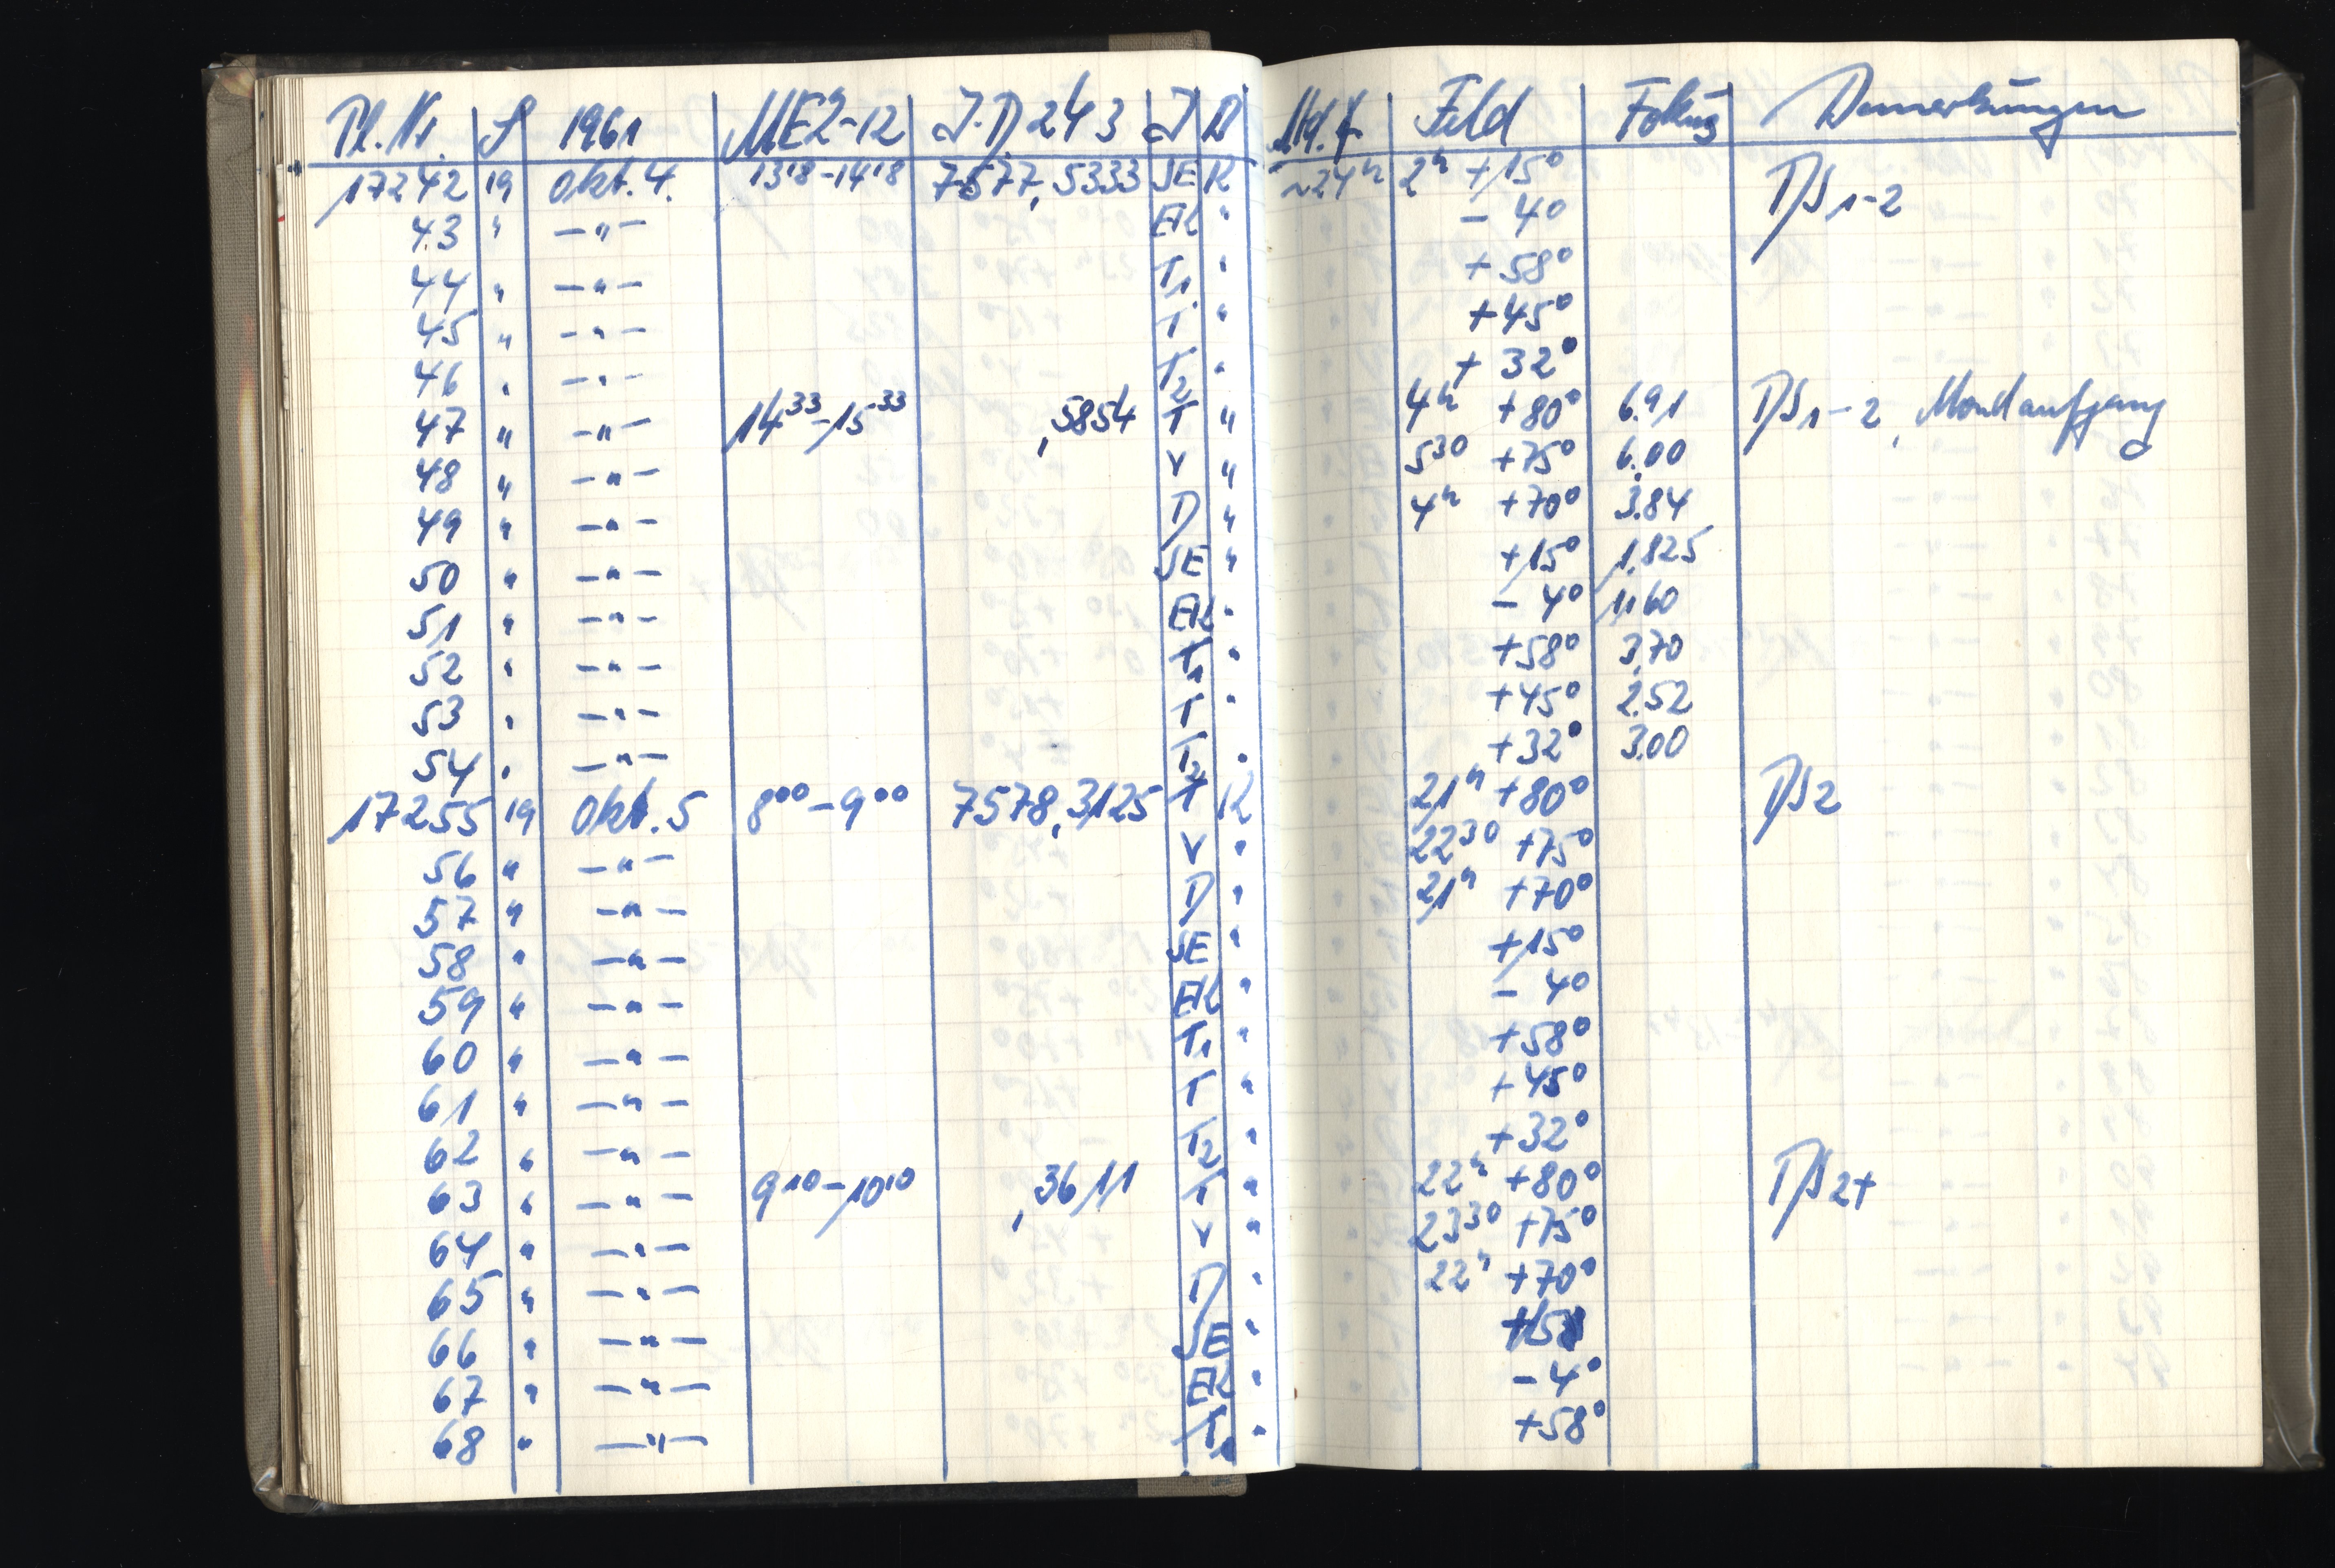 Pl. Nr. S 1961 MEZ-12 J.D. 243 J B Md. F Feld Fokus Bemerkungen
17242 19 Okt. 4. 13 18 - 14 18 7577,5333 SE R ~24h 2h +15° DS 1-2
43 " -"- EK " - 4°
44 " -"- T1 " +58°
45 " -"- T " +45°
46 " -"- T2 " + 32°
47 " -"- 14 33 - 15 33 ,5854 T " 4h +80° 6.91 DS 1-2, Mondaufgang
48 " -"- V " 5 30 +75° 6.00
49 " -"- D " 4h +70° 3.84
50 " -"- SE " +15° 1.825
51 " -"- EK " - 4° 1.160
52 " -"- T1 " +58° 3.70
53 " -"- T " +45° 2.52
54 " -"- T2 " +32° 3.00
17255 19 Okt. 5 8 00 - 9 00 7578,3125 T R 21h +80° DS 2
56 " -"- V " 22 30 +75°
57 " -"- D " 21h +70°
58 " -"- SE " +15°
59 " -"- EK " - 4°
60 " -"- T1 " +58°
61 " -"- T " +45°
62 " -"- T2 " +32°
63 " -"- 9 10 - 10 10 ,3611 T " 22h +80° DS 2+
64 " -"- V " 23 30 +75°
65 " -"- D " 22h +70°
66 " -"- SE " +15°
67 " -"- EK " - 4°
68 " -"- T1 " +58°